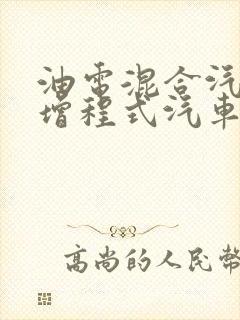 油電混合汽
增程式汽車
高尚的人民幣